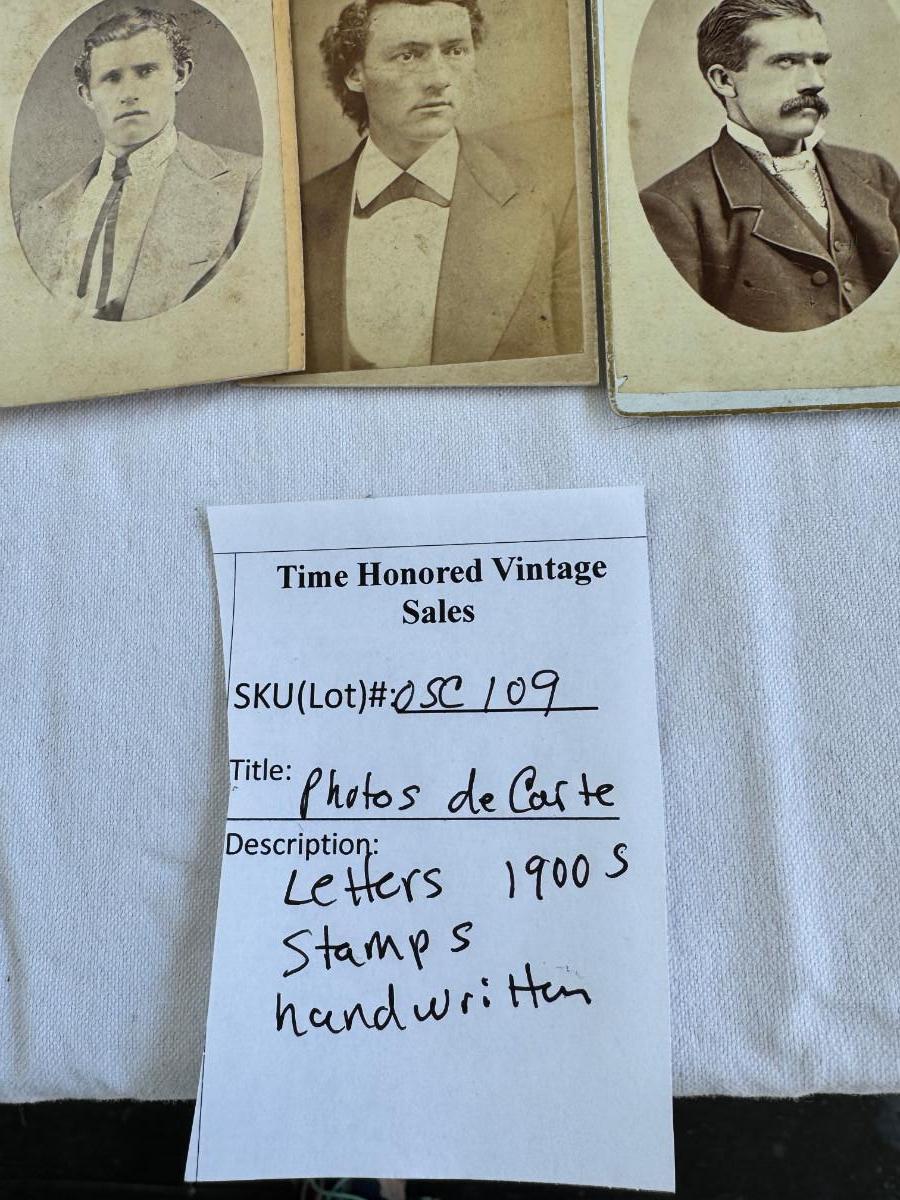 Time Honored Vintage
Sales
SKU(Lot)#:OSC 109
Title: Photos de Carte
Description:
Letters 1900s
Stamps
handwritten